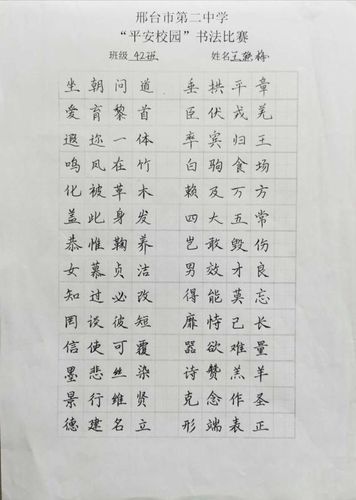 邢台市第二中学
“平安校园”书法比赛
班级 42班 姓名 王
坐朝问道 垂拱平章
爱育黎首 臣伏戎羌
遐迩一体 率宾归王
鸣凤在竹 白驹食场
化被草木 赖及万方
盖此身发 四大五常
恭惟鞠养 岂敢毁伤
女慕贞洁 男效才良
知过必改 得能莫忘
罔谈彼短 靡恃己长
信使可覆 器欲难量
墨悲丝染 诗赞羔羊
景行维贤 克念作圣
德建名立 形端表正